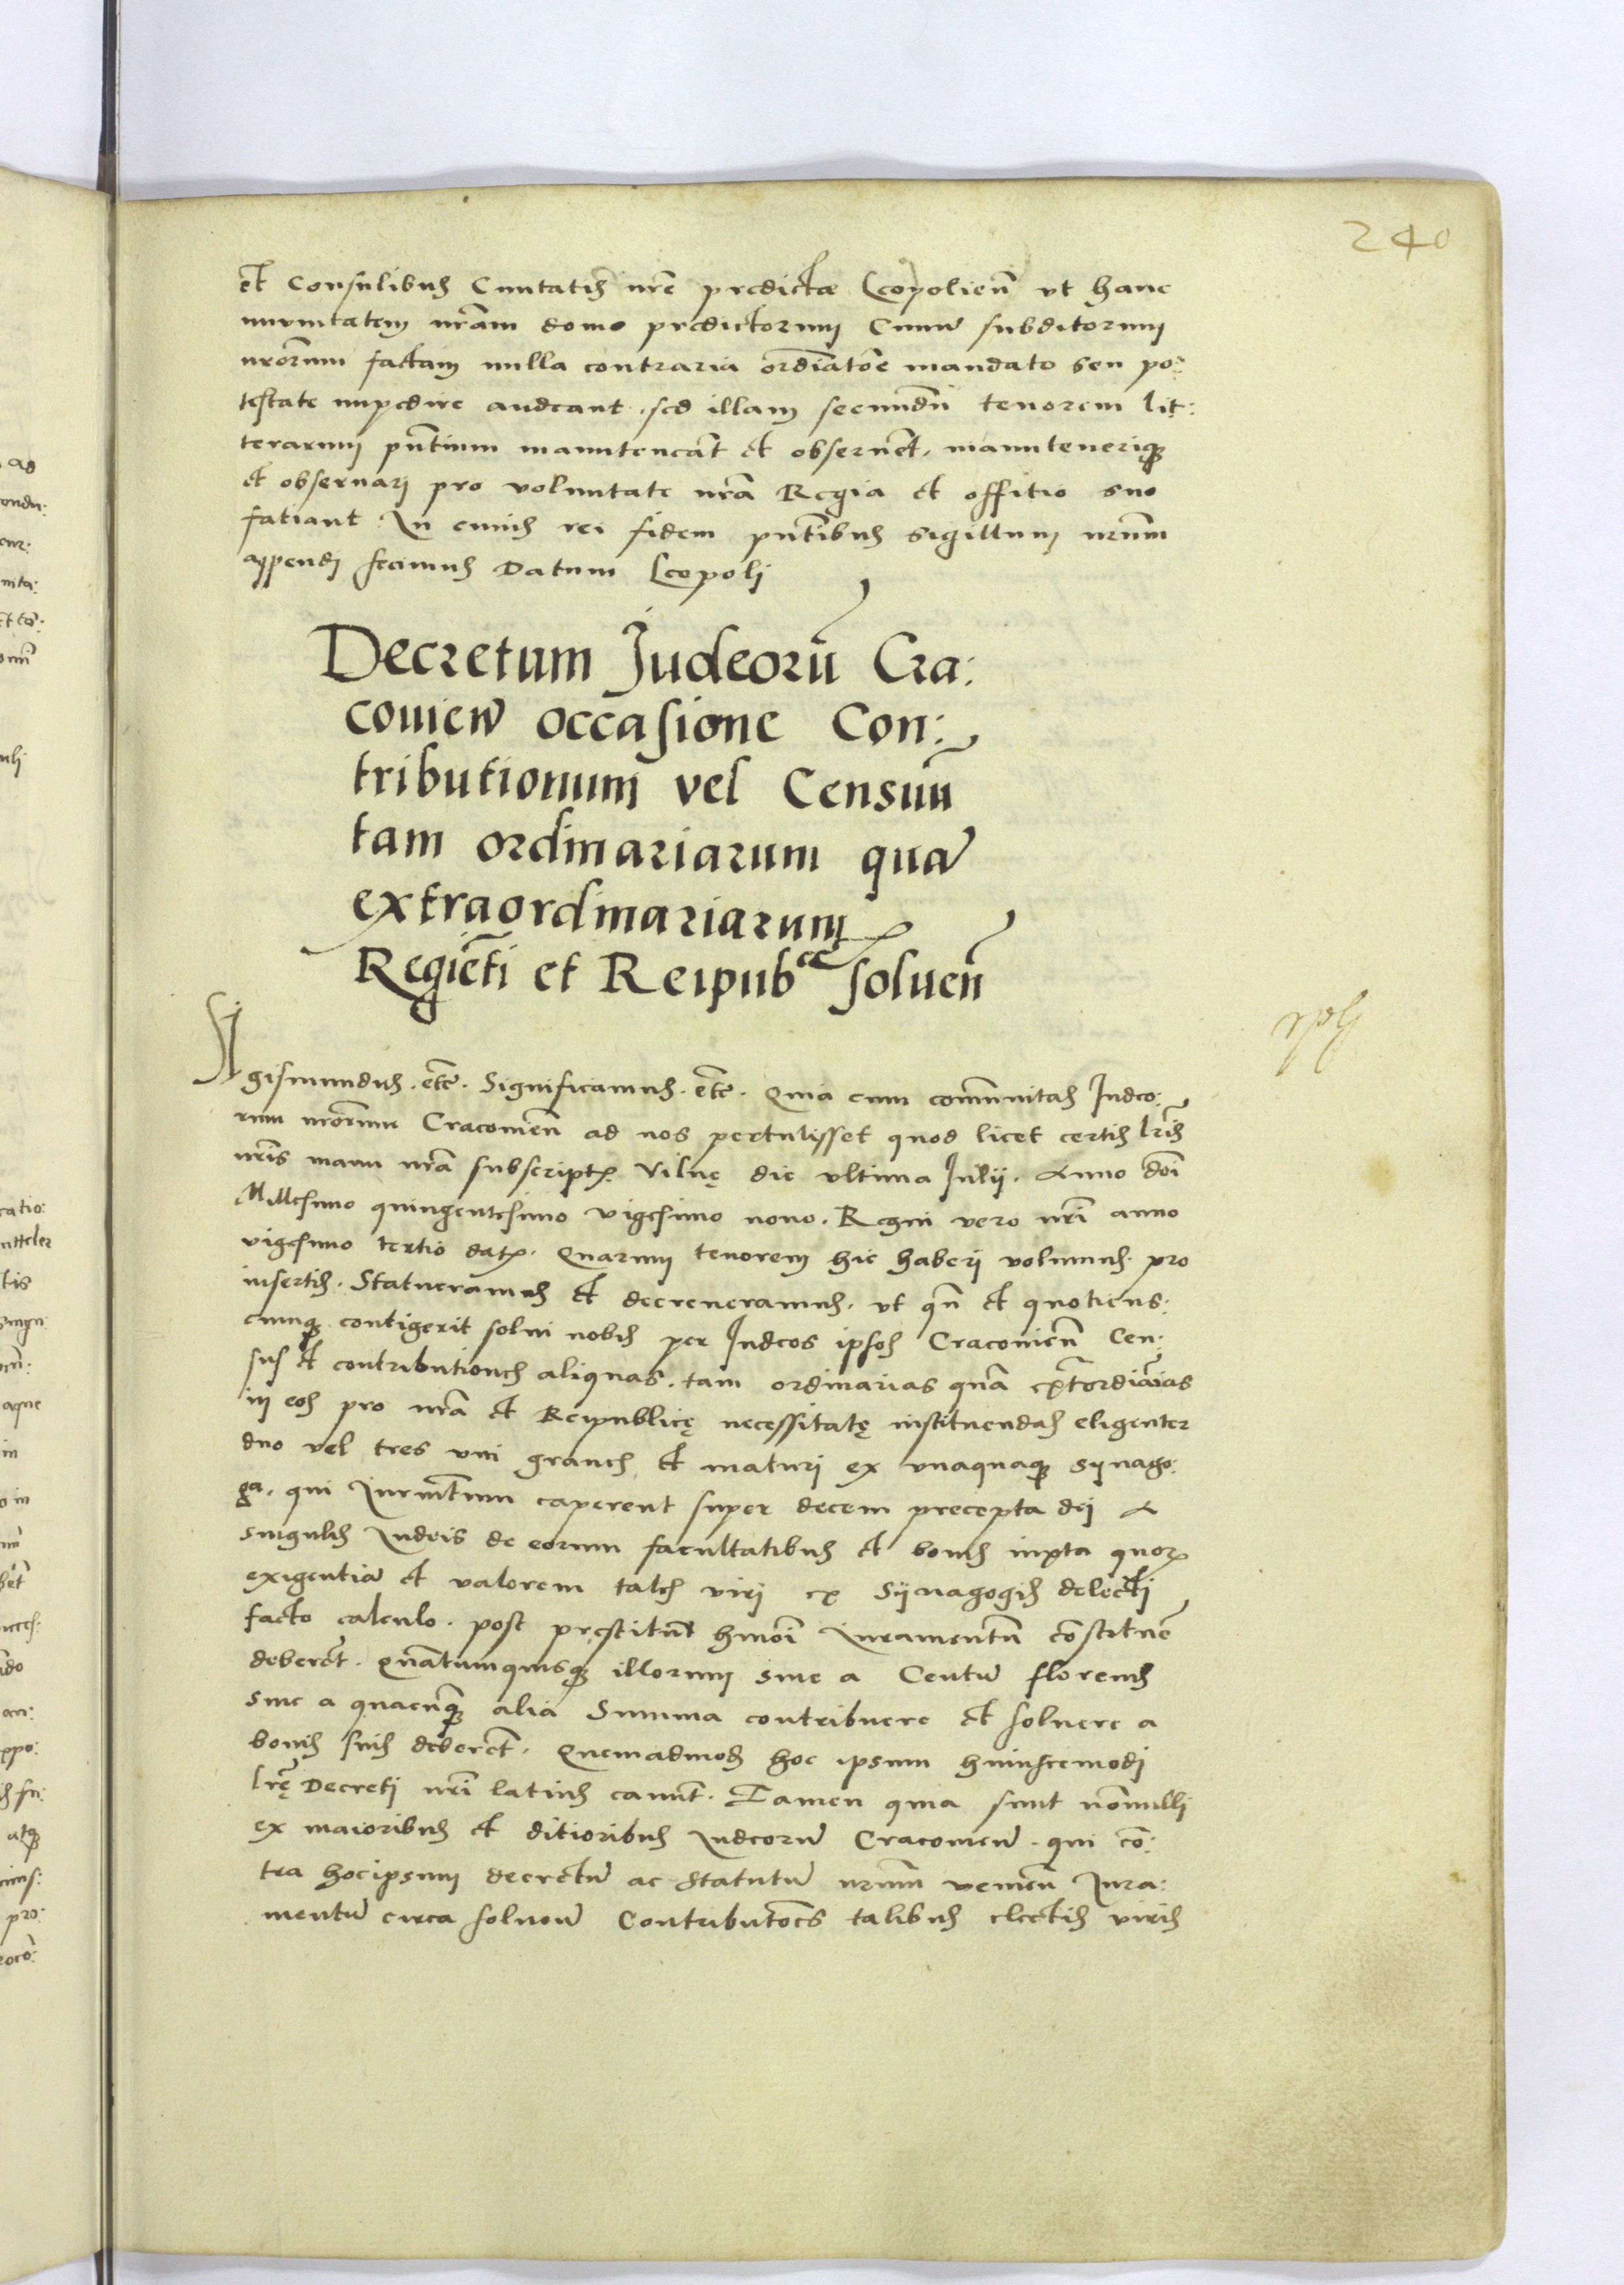 240
et Consulibus Ciuitatis nr̃e predictæ Leopolieñ ut hanc
immitatem nr̃am domo predictorum Ciuiũ subditorum
nr̃orum factam nulla contraria ordiatõe mandato seu po:
testate impedire audeant. sed illam secundũ tenorem lit:
terarum pñtium manuteneãt et obseruẽt. manutenerique
et obseruari pro voluntate nr̃a Regia et offitio suo
fatiant. In cuius rei fidem pñtibus sigillum nr̃um
appendi fecimus Datum Leopoli
Decretum Judeorũ Cra:
couieñ occasione Con:
tributionum vel Censuũ
tam ordinariarum quã
extraordinariarum
Regiẽti et Reipubce solueñ
Sigismundus. etc̃. Significamus. etc̃. Quia cum com̃unitas Judeo:
rum nr̃orum Cracouieñ ad nos pertulisset quod licet certis lr̃is
nr̃is manu nr̃a subscriptꝭ Vilnę die ultima Julij. Anno dñi
Millesimo quingentesimo vigesimo nono. Regni vero nr̃i anno
vigesimo tertio datꝭ. Quarum tenorem hic haberi volumus pro
insertis. Statueramus et decreueramus. ut qñ et quotiens:
cunque contigerit solui nobis per Judeos ipsos Cracouieñ Cen:
sus et contributiones aliquas. tam ordinarias quã extraordiãrias
in eos pro nr̃a et Reipublicę necessitatę instituendas eligenter
duo vel tres viri graues et maturi ex unaquaque synago:
ga. qui Jurmẽtum caperent super decem precepta dei a
singulis Judeis de eorum facultatibus et bonis iuxta quorꝭ
exigentiã et valorem tales viri ex Synagogis delecti
facto calculo. post prestitũ hmoĩ Juramentũ cõstituẽ
deberẽt. Quãtumquisque illorum siue a Centũ florenis
siue a quacũque alia Summa contribuere et soluere a
bonis suis deberẽt. Quemadmodũ hoc ipsum huiuscemodi
lr̃ę Decreti nr̃i latius canũt. Tamen quia sunt nõnulli
ex maioribus et ditioribus Judeorũ Cracouieñ. qui cõ:
tra hocipsum decretũ ac Statutũ nr̃um venieñ Jura:
mentũ circa solueñ Contributões talibus electis viris